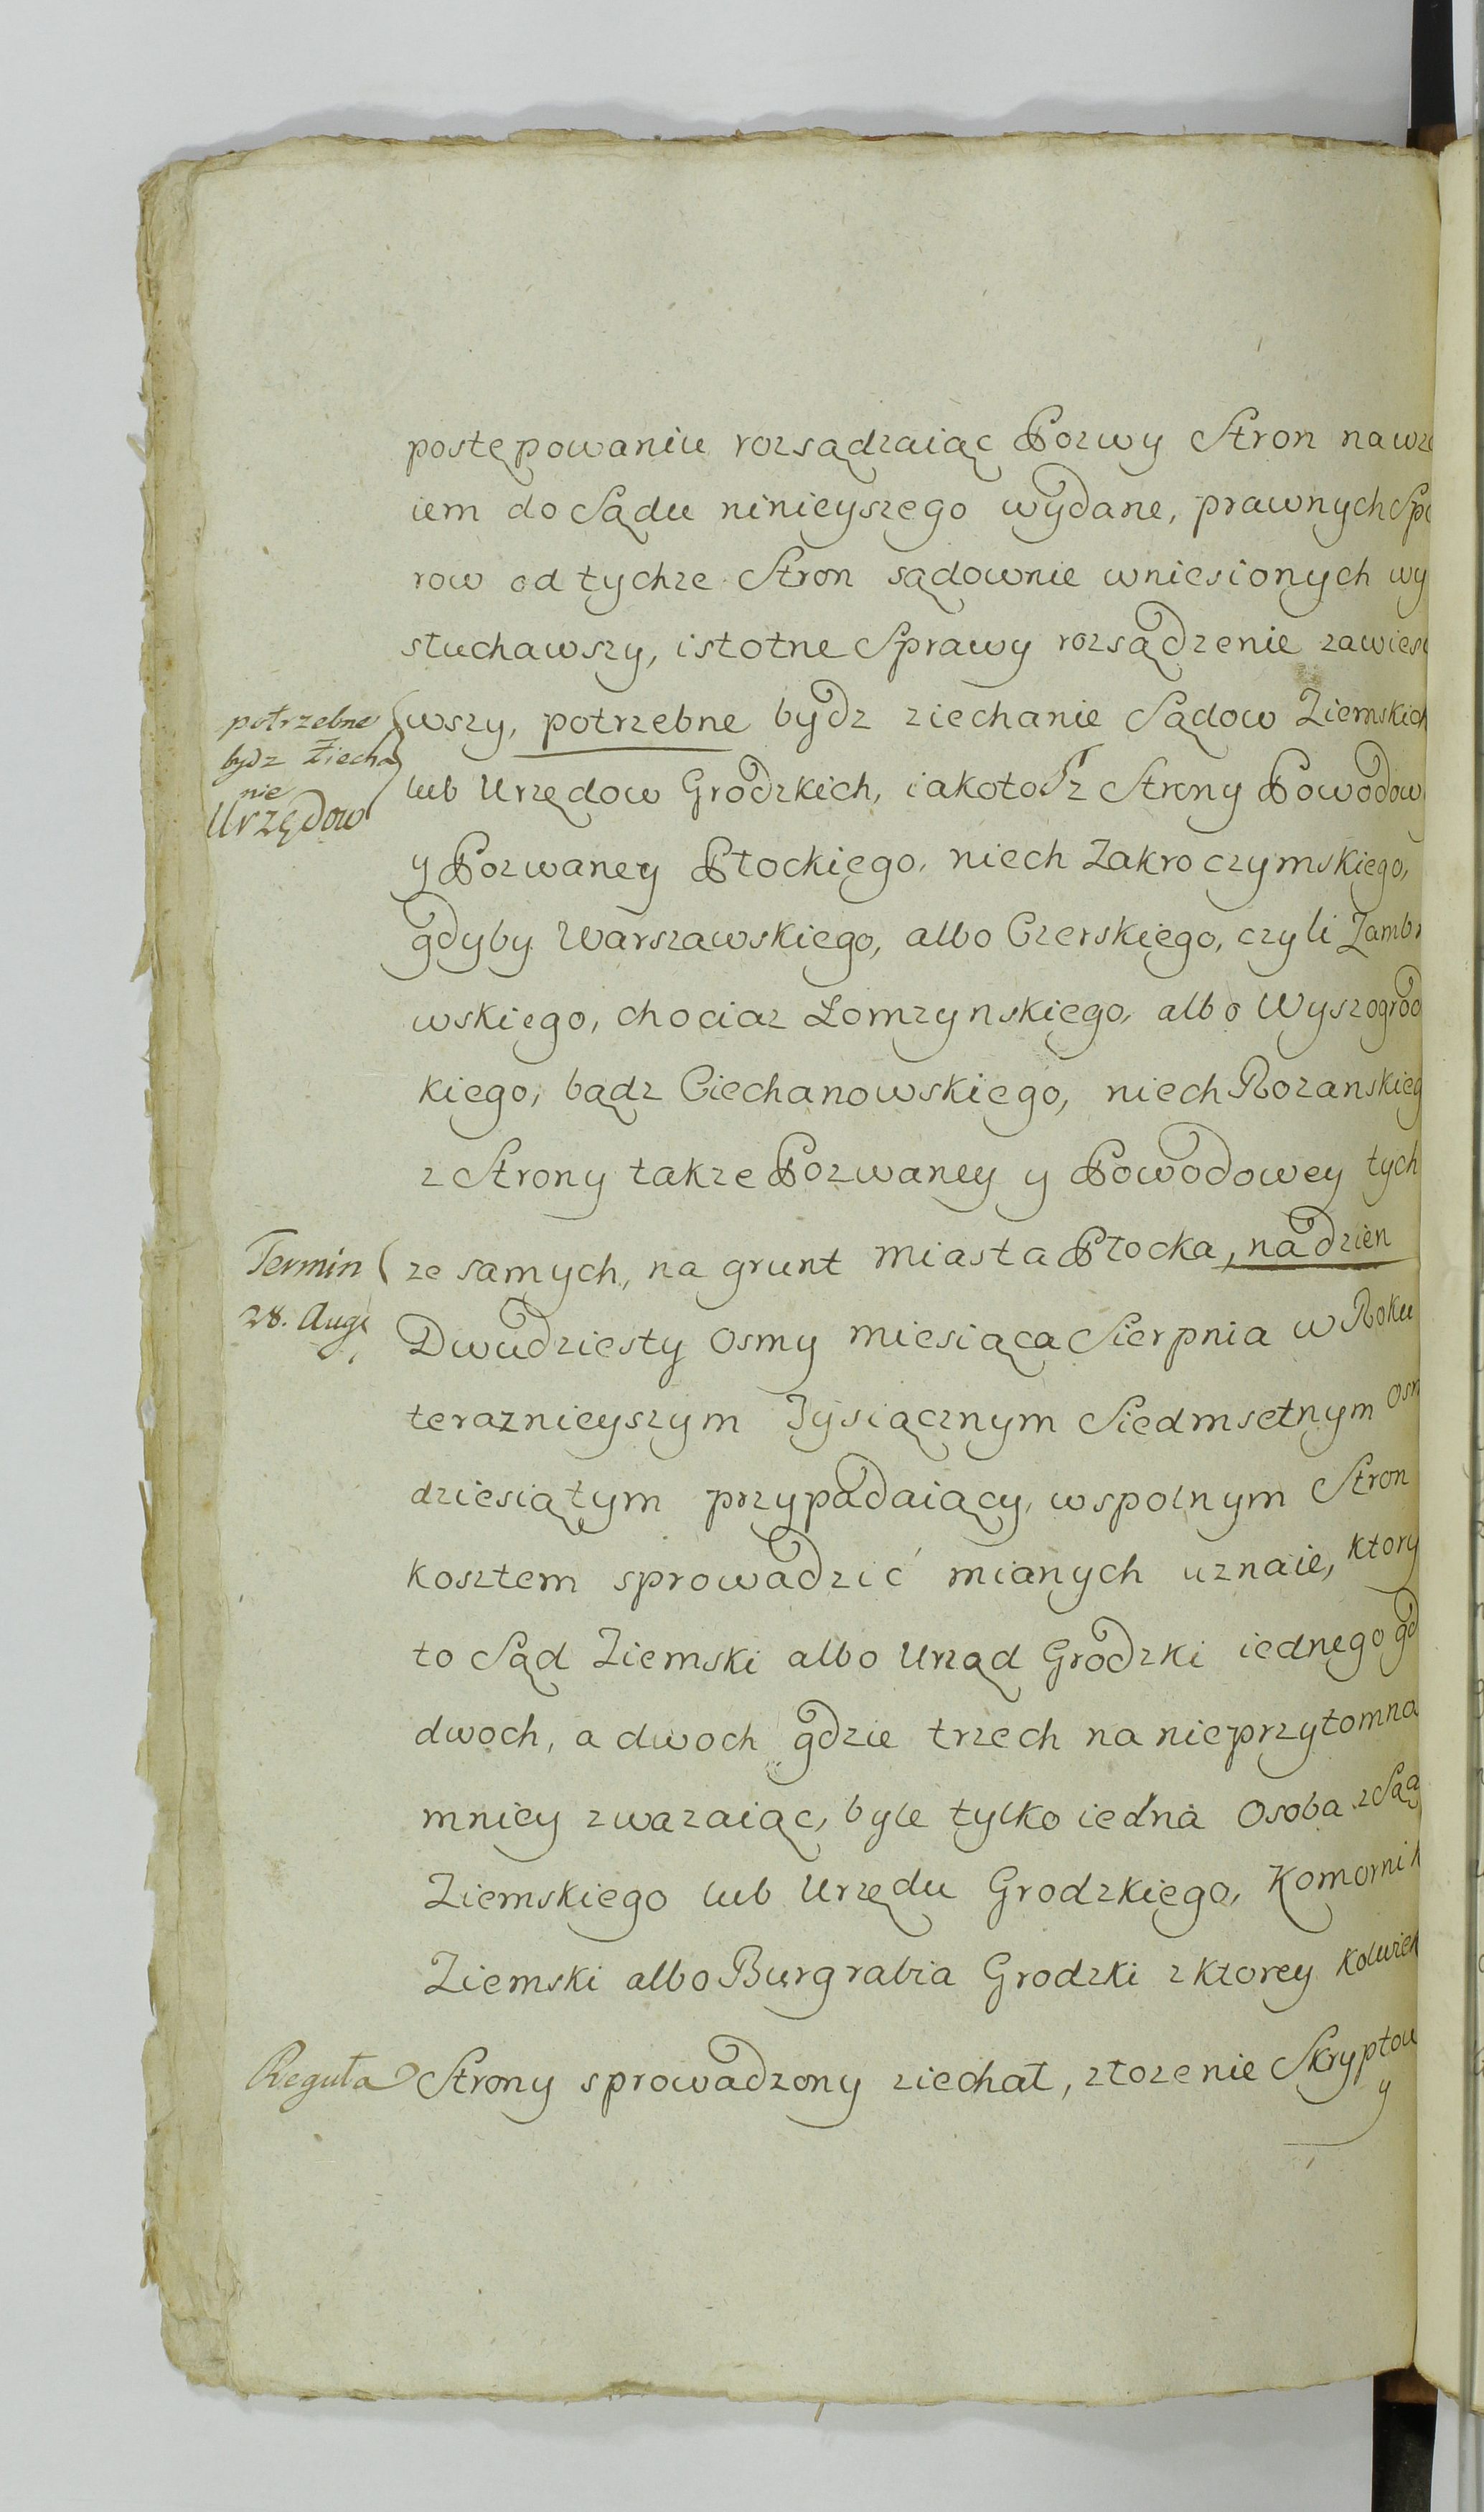 postępowaniu rozsądzaiąc Pozwy Stron nawz
iem do Sądu ninieyszego wydane, prawnych Spo
row od tychze Stron sądownie wniesionych wy
słuchawszy, istotne Sprawy rozsądzenie zawiesi
potrzebne
bydz Ziecha
nie
Urzędow
wszy, potrzebne bydz ziechanie Sądow Ziemskich
lub Urzędow Grodzkich, iakoto z Strony Powodow
y Pozwaney Płockiego, niech Zakroczymskiego,
gdyby Warszawskiego, albo Czerskiego, czyli Zambr
wskiego, chociaz Lomzynskiego, albo Wyszogrod
kiego, bądz Ciechanowskiego, niech Rozanskieg
z Strony takze Pozwaney y Powodowey tych
Termin
28. Augi
ze samych, na grunt miasta Płocka, na dzien
Dwudziesty Osmy miesiąca Sierpnia w Roku
teraznieyszym Tysiącznym Siedmsetnym Osm
dziesiątym przypadaiący, wspolnym Stron
kosztem sprowadzić mianych uznaie, ktory
to Sąd Ziemski albo Urząd Grodzki iednego gd
dwoch, a dwoch gdzie trzech na nieprzytomna
mniey zwazaiąc, byle tylko iedna Osoba z Sąd
Ziemskiego lub Urzędu Grodzkiego, Komornik
Ziemski albo Burgrabia Grodzki z ktorey kolwiek
Reguła
Strony sprowadzony ziechał, złozenie Skryptow
y